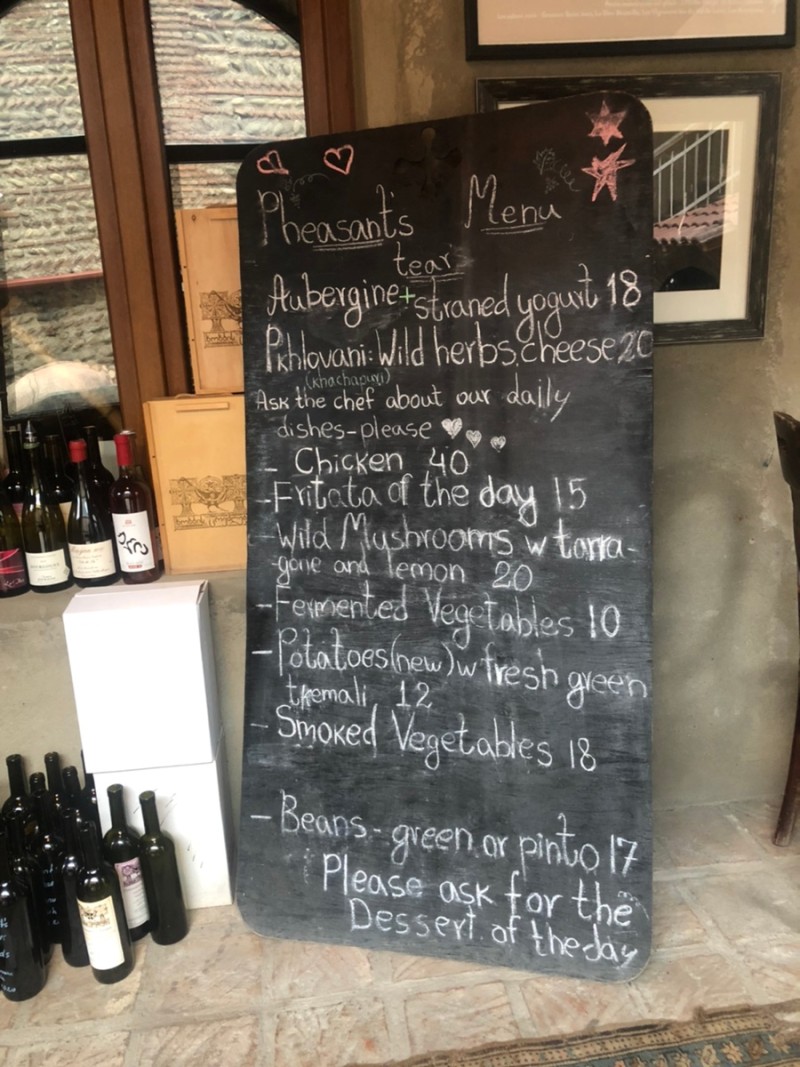 Pheasant's Menu
tear
Aubergine + straned yogurt 18
Pkhlovani: Wild herbs, cheese 20
(khachapuri)
Ask the chef about our daily
dishes-please
- Chicken 40
- Fritata of the day 15
- Wild Mushrooms w tarra-
gone and lemon 20
- Fermented Vegetables 10
- Potatoes (new) w fresh green
tkemali 12
- Smoked Vegetables 18
- Beans - green or pinto 17
Please ask for the
Dessert of the day